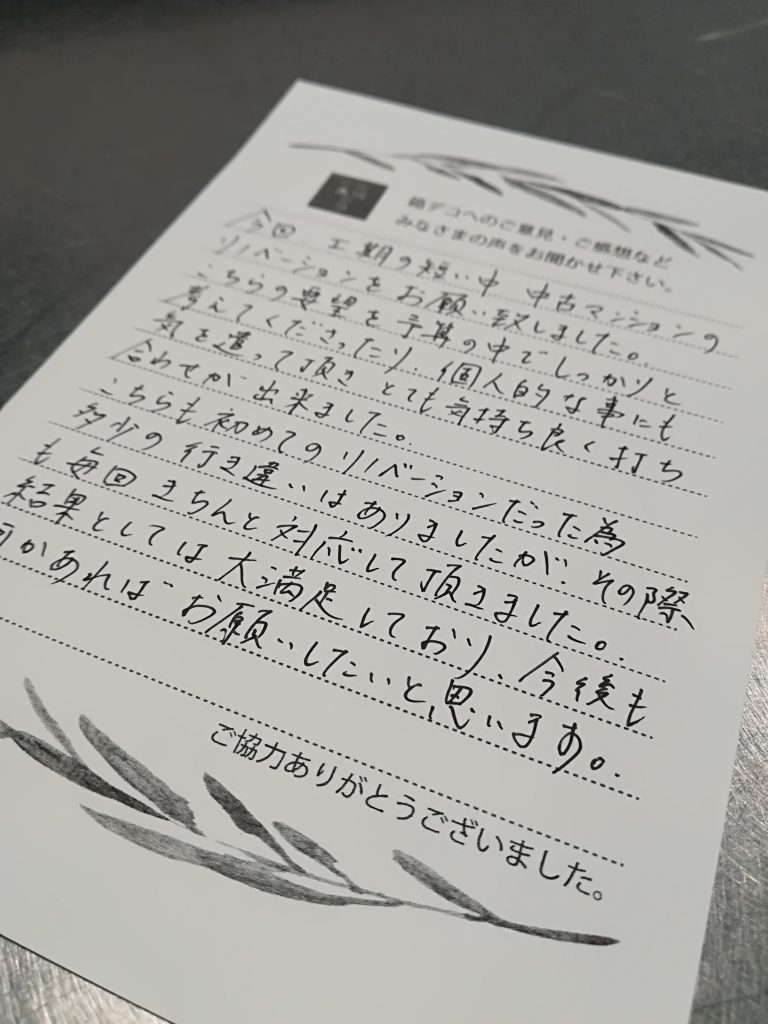 箱デコへのご意見・ご感想など
みなさまの声をお聞かせ下さい。
今回 工期の短い中 中古マンションの
リノベーションをお願い致しました。
こちらの要望を予算の中でしっかりと
考えてくださったり、個人的な事にも
気を遣って頂き とても気持ち良く打ち
合わせが出来ました。
こちらも初めてのリノベーションだった為
多少の行き違いはありましたが、その際
も毎回きちんと対応して頂きました。
結果としては大満足しており、今後も
何かあればお願いしたいと思います。
ご協力ありがとうございました。